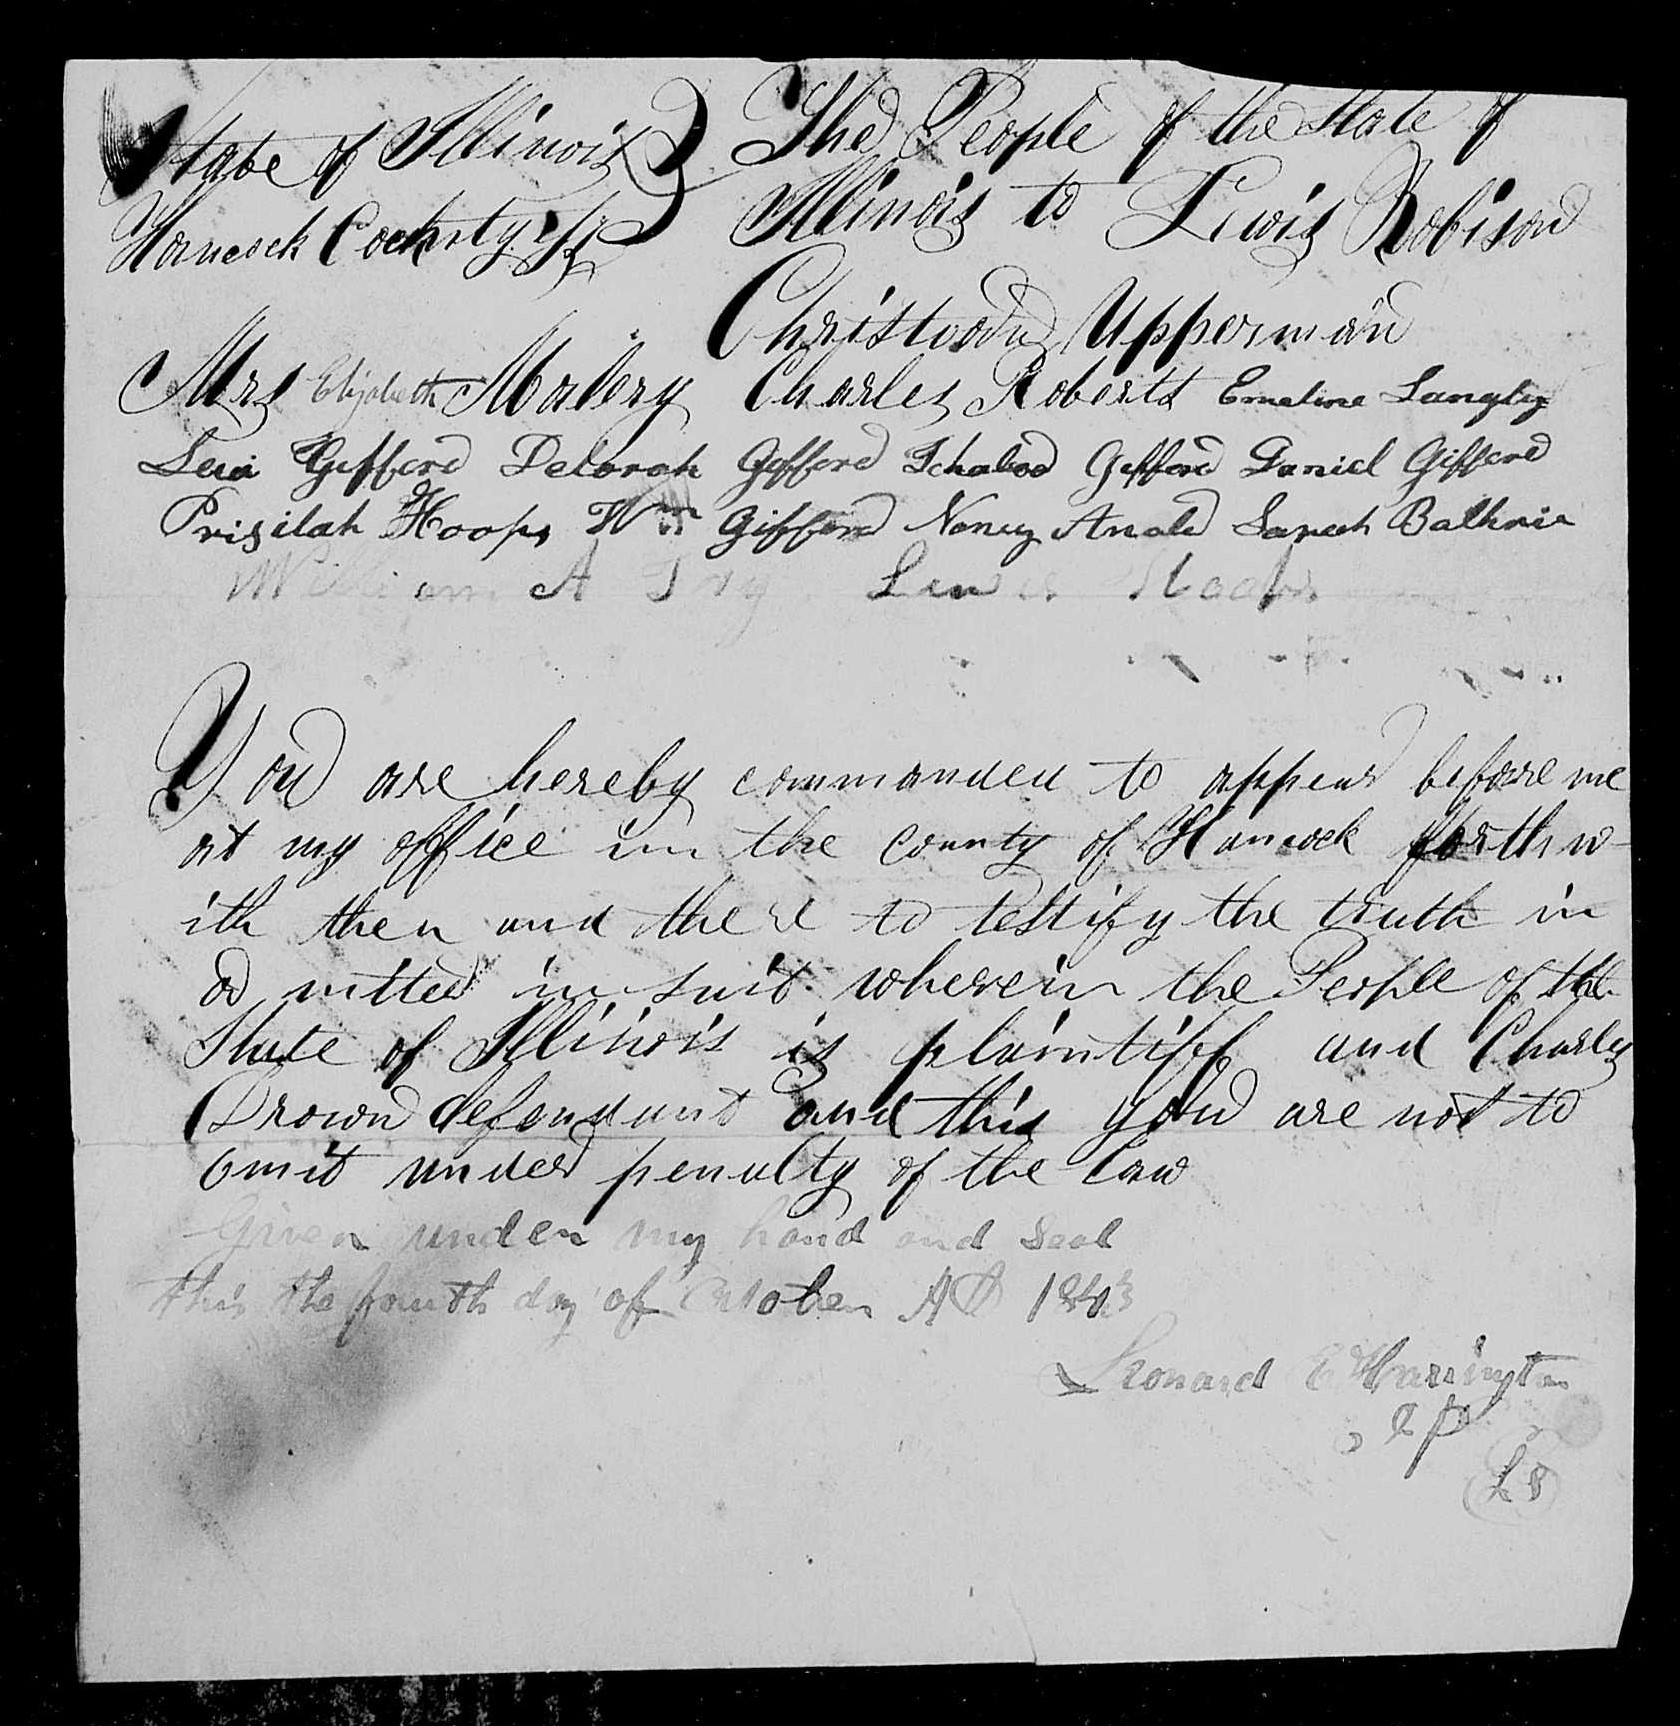 State of Illinois } The People of the State of
Hancock County ss } Illinois to Lewis Robison
Upperman
Mrs Elizabeth Malery Charles Roberts Emeline Langley
Levi Gifford Deborah Gifford Ichabod Gifford Daniel Gifford
Prisilah Hoops Wm Gifford Nancy Sareh
William A Lewis Hoops
You are hereby commanded to appear before me
at my office in the county of Hancock forthw-
ith then and there to testify the truth in
in suit wherein the People of the
State of Illinois is plaintiff and Charles
Brown defendant and this you are not to
omit under penalty of the law
Given under my hand and Seal
this the fourth day of October AD 1843
Leonard E Harrington
J P
L S